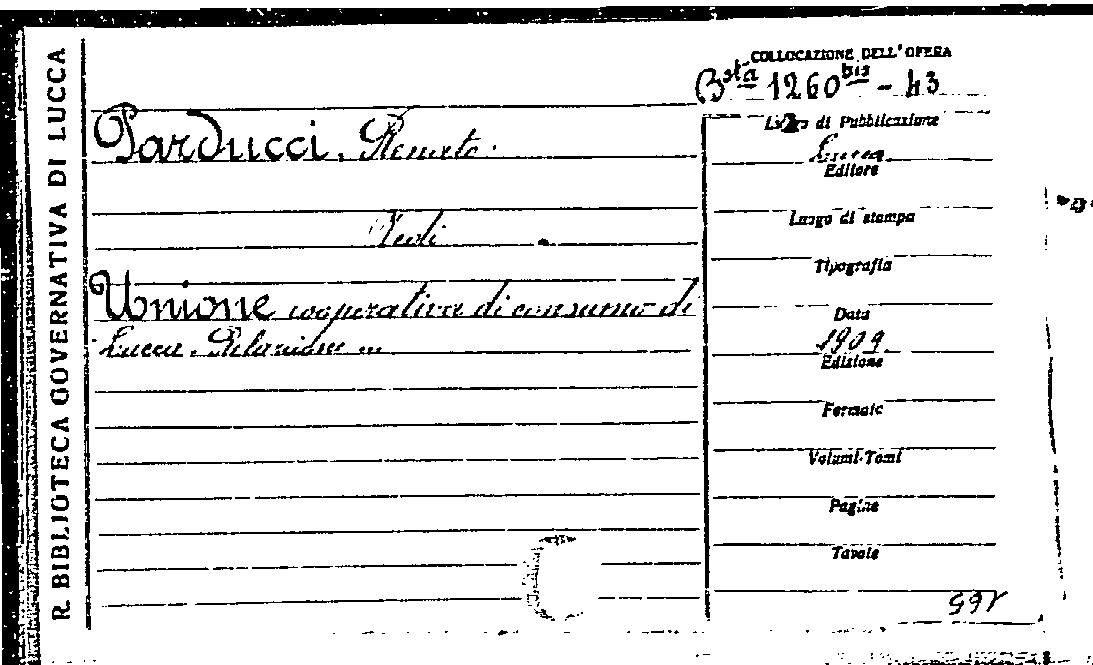 R. BIBLIOTECA GOVERNATIVA DI LUCCA
COLLOCAZIONE DELL'OPERA
Bsta 1260 bis - 43
Parducci, Renato.
Vedi
Unione cooperativa di consumo di
Lucca. Relazione ...
Luogo di Pubblicazione
Lucca
Editore
Luogo di stampa
Tipografia
Data
1909
Edizione
Formato
Volumi-Tomi
Pagine
Tavole